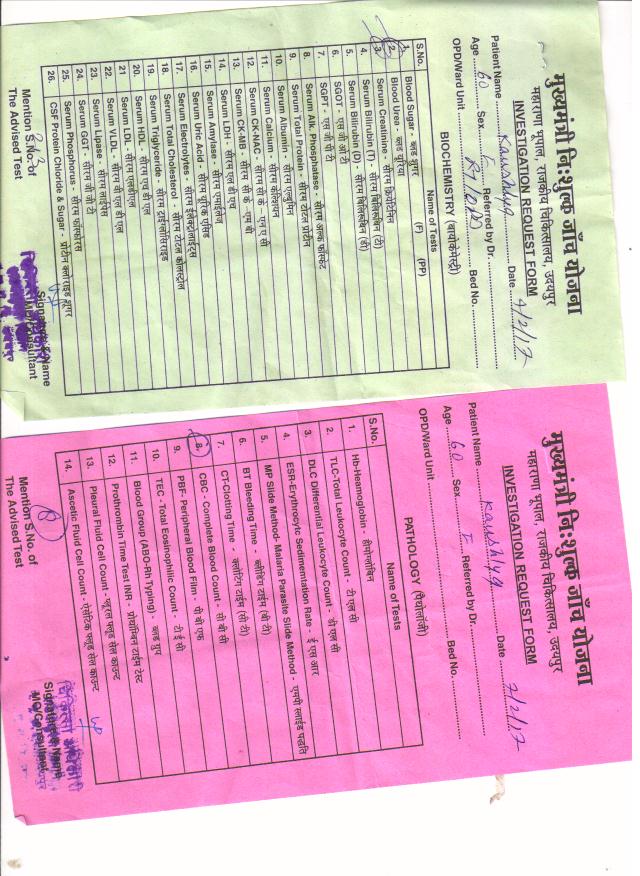 मुख्यमंत्री निःशुल्क जाँच योजना
महाराणा भूपाल, राजकीय चिकित्सालय, उदयपुर
INVESTIGATION REQUEST FORM
Patient Name Kaushlya Date 7/2/17
Age 60 Sex F Referred by Dr.
OPD/Ward Unit Bed No.
BIOCHEMISTRY (बायोकेमेस्ट्री)
S.No. Name of Tests
1. Blood Sugar - ब्लड शुगर (F) (PP)
2. Blood Urea - ब्लड यूरिया
3. Serum Creatinine - सीरम क्रिएटिनिन
4. Serum Bilirubin (T) - सीरम बिलिरूबिन (टी)
5. Serum Bilirubin (D) - सीरम बिलिरूबिन (डी)
6. SGOT - एस जी ओ टी
7. SGPT - एस जी पी टी
8. Serum Alk. Phosphatase - सीरम अल्क फॉस्फेट
9. Serum Total Protein - सीरम टोटल प्रोटीन
10. Serum Albumin - सीरम एल्बुमिन
11. Serum Calcium - सीरम कैल्शियम
12. Serum CK-NAC - सीरम सी के -एन ए सी
13. Serum CK-MB - सीरम सी के -एम बी
14. Serum LDH - सीरम एल डी एच
15. Serum Amylase - सीरम एमाईलेज
16. Serum Uric Acid - सीरम यूरिक एसिड
17. Serum Electrolytes - सीरम इलेक्ट्रोलाईट्स
18. Serum Total Cholesterol - सीरम टोटल कोलेस्ट्रोल
19. Serum Triglyceride - सीरम ट्राईग्लीसिराइड
20. Serum HDL - सीरम एच डी एल
21. Serum LDL - सीरम एलडीएल
22. Serum VLDL - सीरम वी एल डी एल
23. Serum Lipase - सीरम लाईपेस
24. Serum GGT - सीरम जी जी टी
25. Serum Phosphorus - सीरम फॉस्फोरस
26. CSF Protein Chloride & Sugar - प्रोटीन क्लोराइड शुगर
Mention S.No. of
The Advised Test
2, 3
Signature & Name
MO/Consultant
मुख्यमंत्री निःशुल्क जाँच योजना
महाराणा भूपाल, राजकीय चिकित्सालय, उदयपुर
INVESTIGATION REQUEST FORM
Patient Name Kaushlya Date 7/2/17
Age 60 Sex F Referred by Dr.
OPD/Ward Unit Bed No.
PATHOLOGY (पैथोलॉजी)
S.No. Name of Tests
1. Hb-Heamoglobin - हीमोग्लोबिन
2. TLC-Total Leukocyte Count - टी एल सी
3. DLC Differential Leukocyte Count - डी एल सी
4. ESR-Erythrocytc Sedimentation Rate - ई एस आर
5. MP Slide Method- Malaria Parasite Slide Method - एमपी स्लाईड पद्धति
6. BT Bleeding Time - ब्लीडिंग टाईम (बी टी)
7. CT-Clotting Time - क्लोटिंग टाईम (सी टी)
8. CBC - Complete Blood Count - सी बी सी
9. PBF- Peripheral Blood Film - पी बी एफ
10. TEC - Total Eosinophilic Count - टी ई सी
11. Blood Group (ABO-Rh Typing) - ब्लड ग्रुप
12. Prothrombin Time Test INR - प्रोथोम्बिन टाईम टेस्ट
13. Pleural Fluid Cell Count - प्लूरल फ्लूड सेल काउन्ट
14. Ascetic Fluid Cell Count - ऐसेटिक फ्लूड सेल काउन्ट
Mention S.No. of
The Advised Test
8
Signature & Name
MO/Consultant